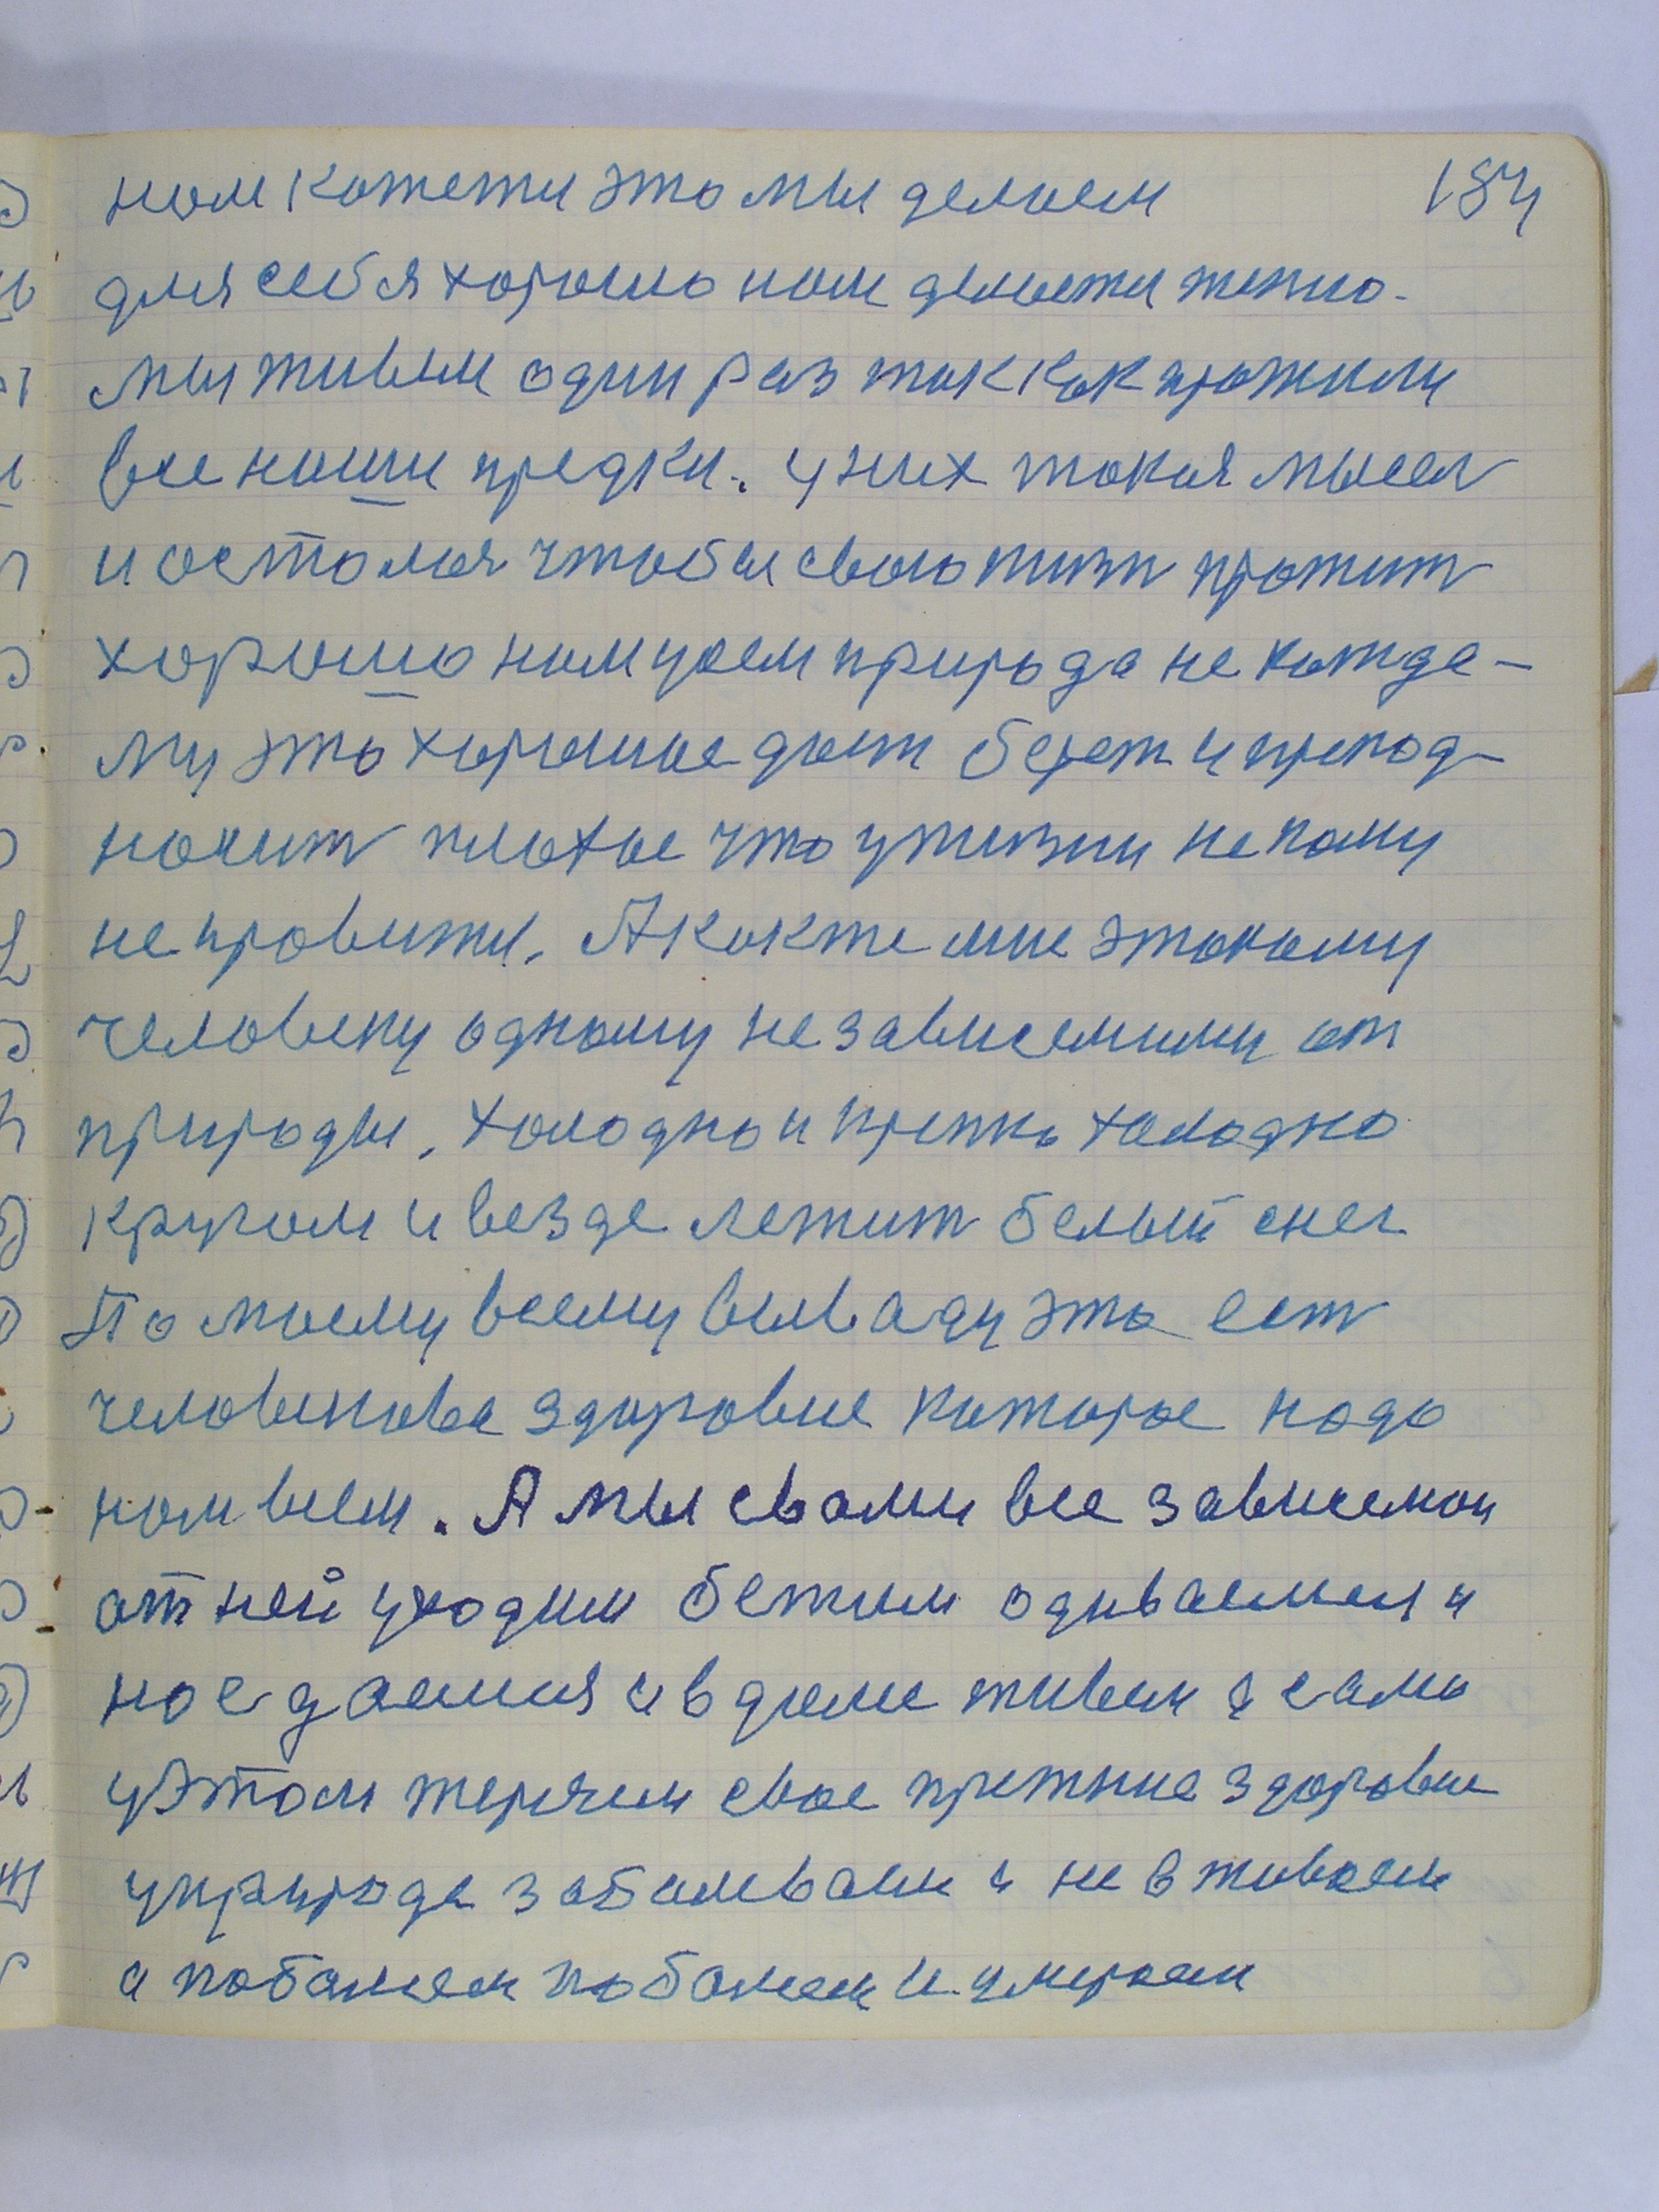 184
нам кажетси это мы делаем
для себя хорошо нам делаетси тепло.
мы живем один раз так как прожили
все наши предки. у них такая мысел
и осталас чтобы свою жизн прожит
хорошо нам усем природа не кажда-
му это хорошое дает берет и препод-
носит плохое что у жизни не кому
не нравитси. А как же мне этакому
человеку одному не зависемиму от
природы. холодно и крепко холодно
кругом и везде лежит белый снег
По моему всему выводу это ест
человекова здоровие каторое надо
нам всем. А мы с вами все зависемои
от ней уходим бежим одиваемся и
наедаемся и в доме живем а само
у этом теряем свое прежние здоровие
у природе заболеваем и не вживаем
а поболеем поболеем и умераем